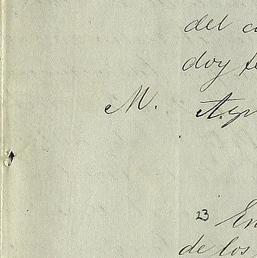 del
doy
M.
23 En
de los